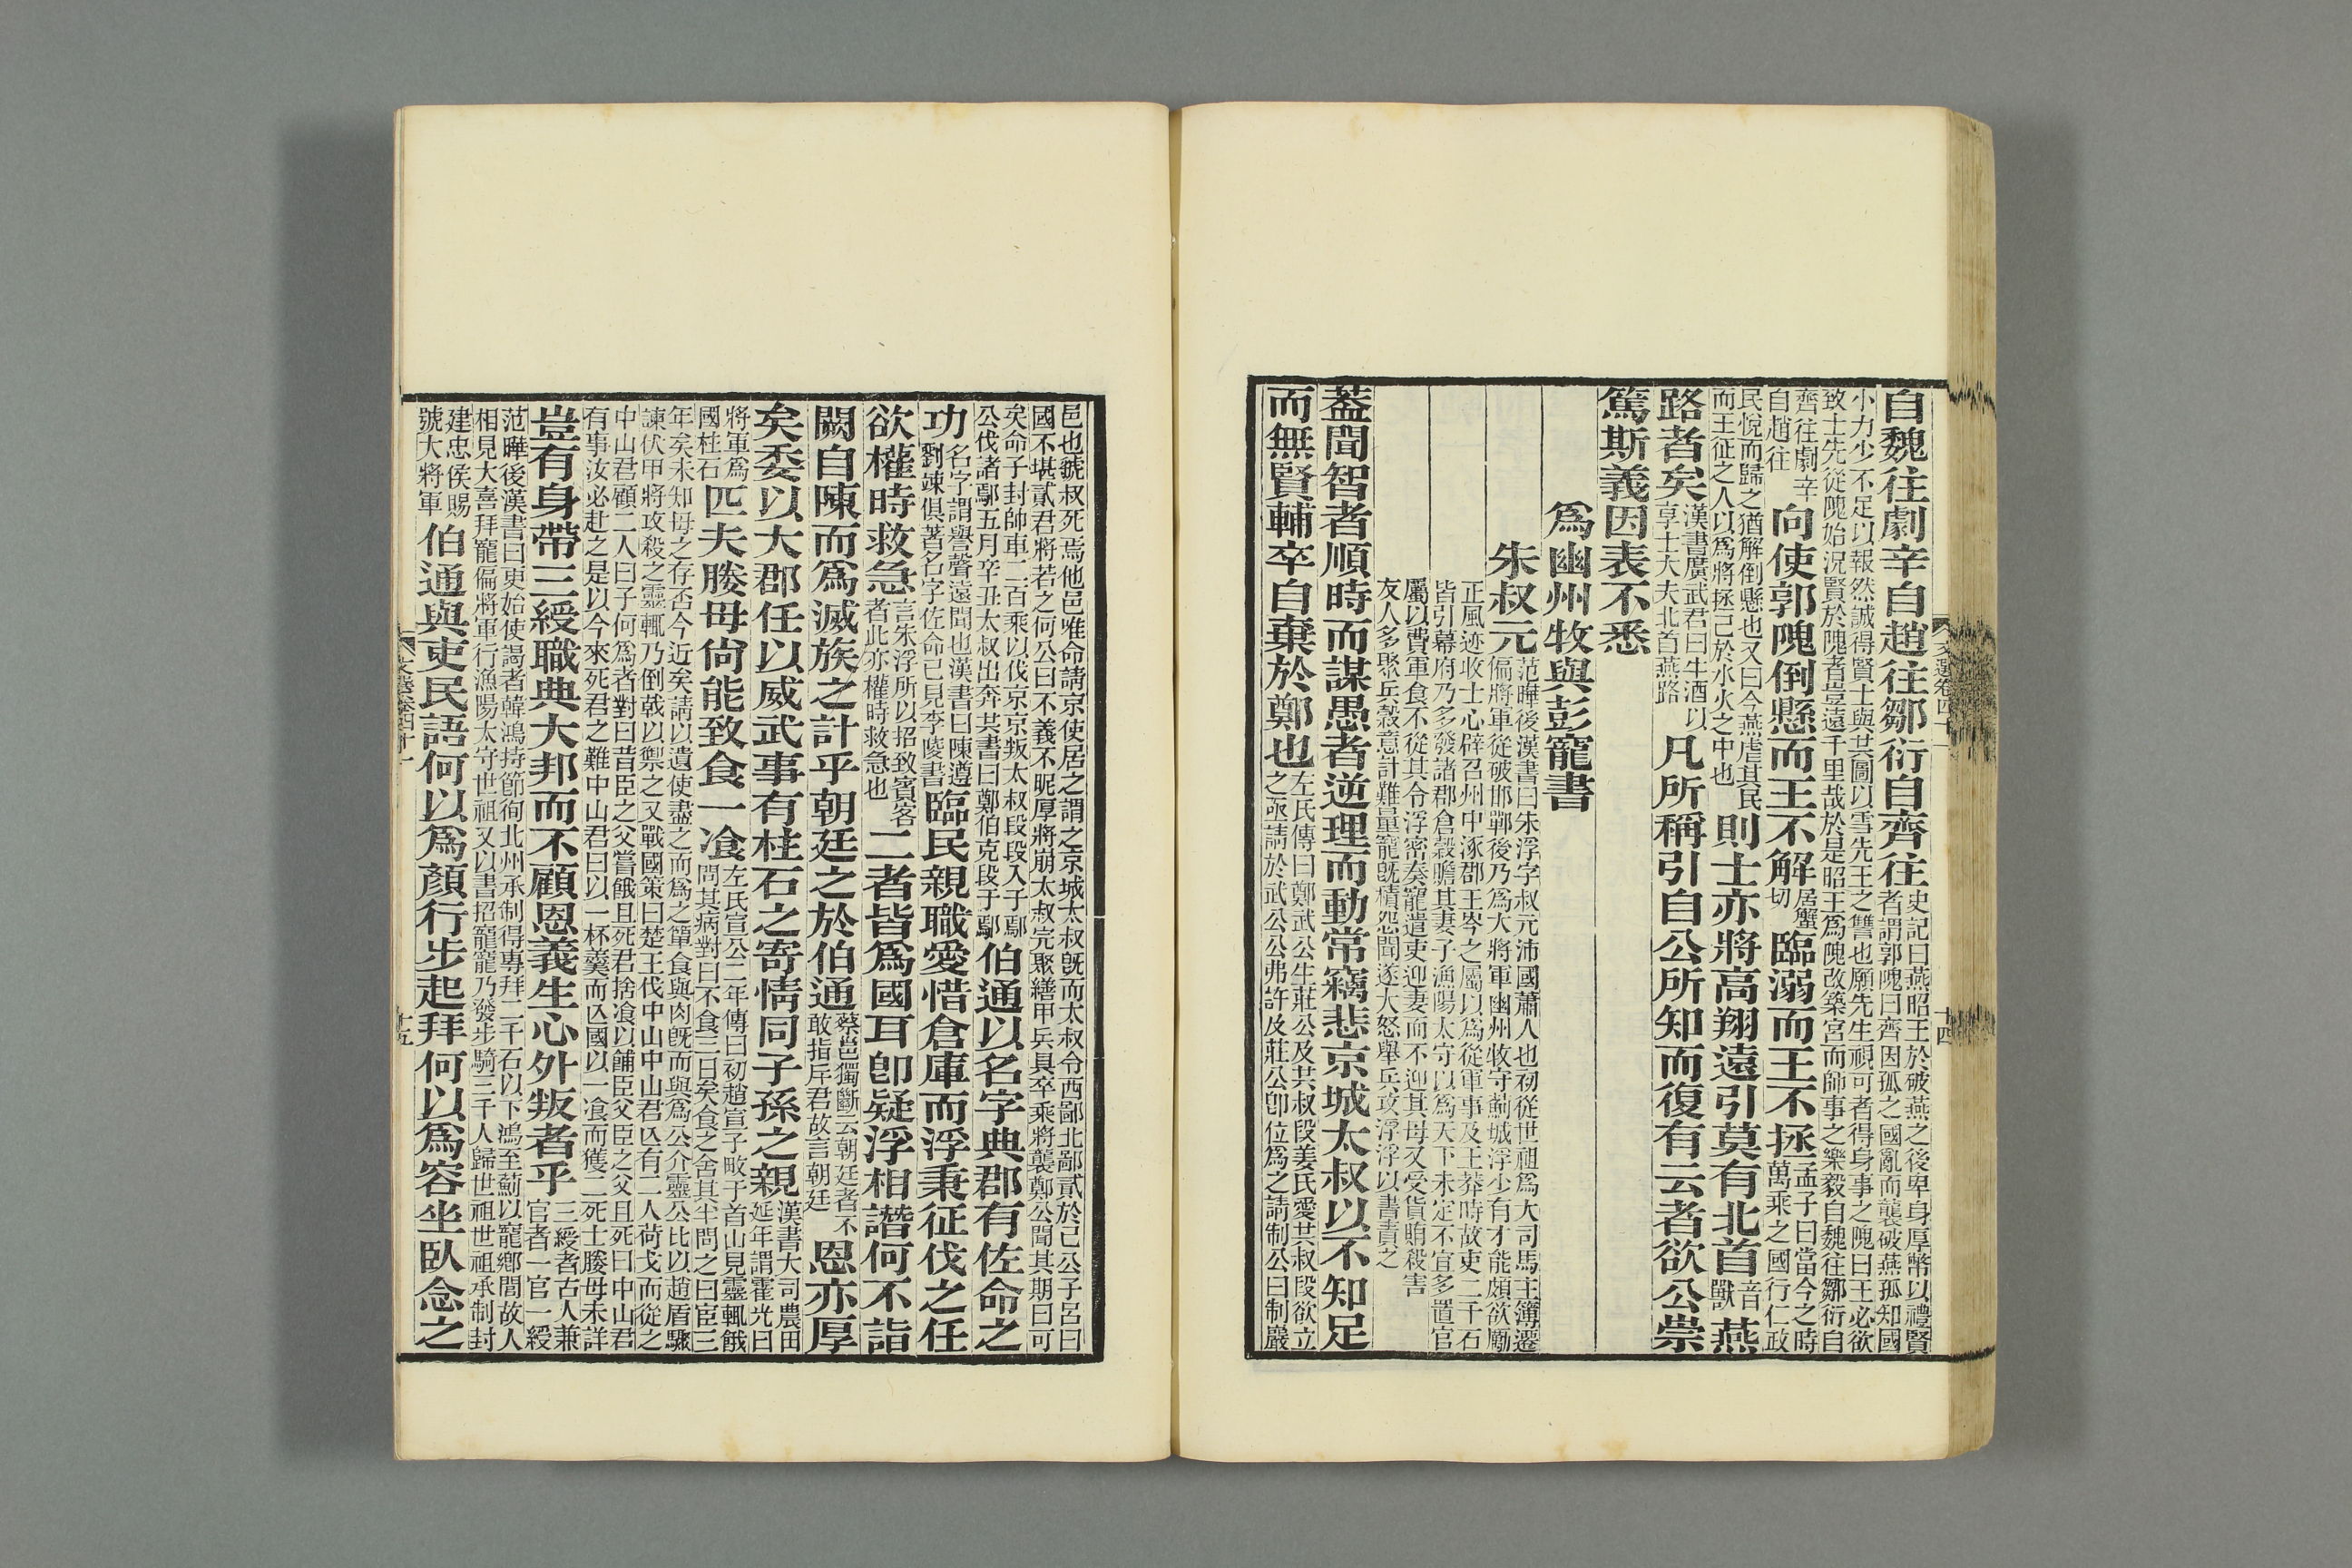 自魏往劇辛自趙往鄒衍自齊往史記曰燕昭王於破燕之後卑身厚幣以禮賢者謂郭隗曰齊因孤之國亂而襲破燕孤知國
小力少不足以報然誠得賢士與共圖以雪先王之讐也願先生視可者得身事之隗曰王必欲致士先從隗始況賢於隗者豈遠千里哉於是昭王爲隗改築宮而師事之樂毅自魏往鄒衍自
齊往劇辛自趙往向使郭隗倒懸而王不解居蟹切臨溺而王不拯孟子曰當今之時萬乘之國行仁政
民悅而歸之猶解倒懸也又曰今燕虐其民而王征之人以爲將拯己於水火之中也則士亦將高翔遠引莫有北首音獸燕
路者矣漢書廣武君曰牛酒以享士大夫北首燕路凡所稱引自公所知而復有云者欲公崇
篤斯義因表不悉
爲幽州牧與彭寵書
朱叔元范曄後漢書曰朱浮字叔元沛國蕭人也初從世祖爲大司馬主簿遷偏將軍從破邯鄲後乃爲大將軍幽州牧守薊城浮少有才能頗欲勵
正風迹收士心辟召州中涿郡王岑之屬以爲從軍事及王莽時故吏二千石皆引幕府乃多發諸郡倉穀贍其妻子漁陽太守以爲天下未定不宜多置官
屬以費軍食不從其令浮密奏寵遣吏迎妻而不迎其母又受貨賄殺害友人多聚兵穀意計難量寵旣積怨聞遂大怒舉兵攻浮浮以書責之
蓋聞智者順時而謀愚者逆理而動常竊悲京城太叔以不知足
而無賢輔卒自棄於鄭也左氏傳曰鄭武公生莊公及共叔段姜氏愛共叔段欲立之亟請於武公公弗許及莊公卽位爲之請制公曰制巖
文選卷四十一
十四
邑也虢叔死焉他邑唯命請京使居之謂之京城太叔旣而太叔令西鄙北鄙貳於己公子呂曰國不堪貳君將若之何公曰不義不昵厚將崩太叔完聚繕甲兵具卒乘將襲鄭公聞其期曰可
矣命子封帥車二百乘以伐京京叛太叔段段入于鄢公伐諸鄢五月辛丑太叔出奔共書曰鄭伯克段于鄢伯通以名字典郡有佐命之
功名字謂譽聲遠聞也漢書曰陳遵劉竦俱著名字佐命已見李陵書臨民親職愛惜倉庫而浮秉征伐之任
欲權時救急言朱浮所以招致賓客者此亦權時救急也二者皆爲國耳卽疑浮相譖何不詣
闕自陳而爲滅族之計乎朝廷之於伯通蔡邕獨斷云朝廷者不敢指斥君故言朝廷恩亦厚
矣委以大郡任以威武事有柱石之寄情同子孫之親漢書大司農田延年謂霍光曰
將軍爲國柱石匹夫媵母尙能致食一飡左氏宣公二年傳曰初趙宣子畋于首山見靈輒餓問其病對曰不食三日矣食之舍其半問之曰宦三
年矣未知母之存否今近矣請以遺使盡之而爲之簞食與肉旣而與爲公介靈公比以趙盾驟諫伏甲將攻殺之靈輒乃倒戟以禦之又戰國策曰楚王伐中山中山君亾有二人荷戈而從之
中山君顧二人曰子何爲者對曰昔臣之父嘗餓且死君捨飡以餔臣父臣之父且死曰中山君有事汝必赴之是以今來死君之難中山君曰以一杯羹而亾國以一飡而獲二死士媵母未詳
豈有身帶三綬職典大邦而不顧恩義生心外叛者乎三綬者古人兼官者一官一綬
范曄後漢書曰更始使謁者韓鴻持節徇北州承制得專拜二千石以下鴻至薊以寵鄉閭故人相見大喜拜寵偏將軍行漁陽太守世祖又以書招寵寵乃發步騎三千人歸世祖世祖承制封
建忠侯賜號大將軍伯通與吏民語何以爲顏行步起拜何以爲容坐臥念之
文選卷四十一
十五